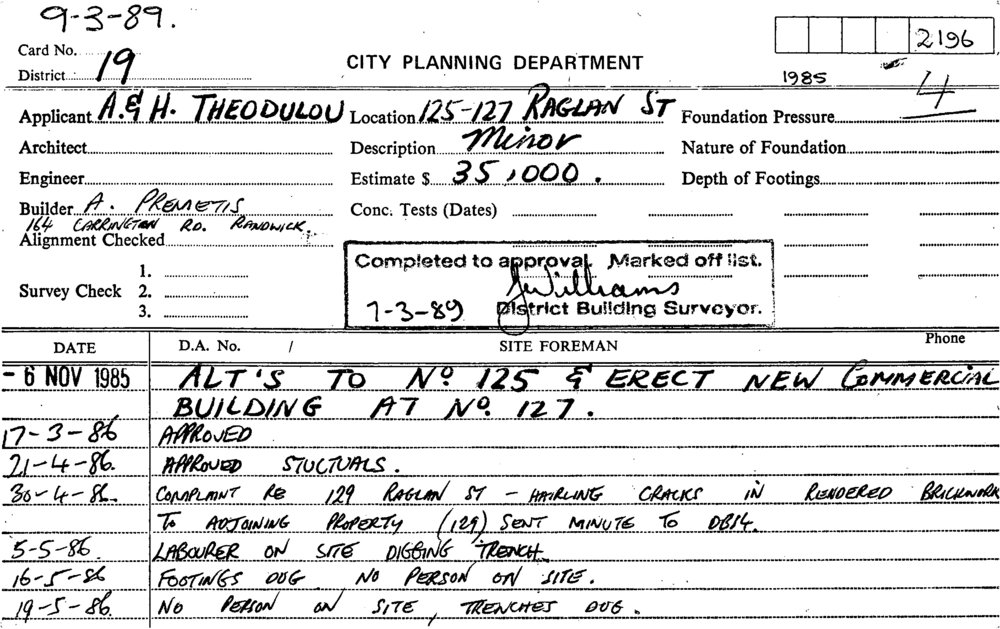 9-3-89.
Card No.
2196
District 19
CITY PLANNING DEPARTMENT
1985
4
Applicant A. & H. THEODULOU Location 125-127 RAGLAN ST Foundation Pressure
Architect Description Minor Nature of Foundation
Engineer Estimate $ 35,000. Depth of Footings
Builder A. PREMETIS Conc. Tests (Dates)
164 CARRINGTON RD. RANDWICK.
Alignment Checked
Completed to approval. Marked off list.
1.
Survey Check 2.
JWilliams
3.
7-3-89 District Building Surveyor.
DATE D.A. No. / SITE FOREMAN Phone
- 6 NOV 1985 ALT'S TO Nº 125 & ERECT NEW COMMERCIAL
BUILDING AT Nº 127.
17-3-86 APPROVED
21-4-86. APPROVED STUCTUALS.
30-4-86. COMPLAINT RE 129 RAGLAN ST - HAIRLING CRACKS IN RENDERED BRICKWORK
To ADJOINING PROPERTY (129) SENT MINUTE TO DBS4.
5-5-86. LABOURER ON SITE DIGGING TRENCH
16-5-86 FOOTINGS DUG NO PERSON ON SITE.
19-5-86. NO PERSON ON SITE, TRENCHES DUG.